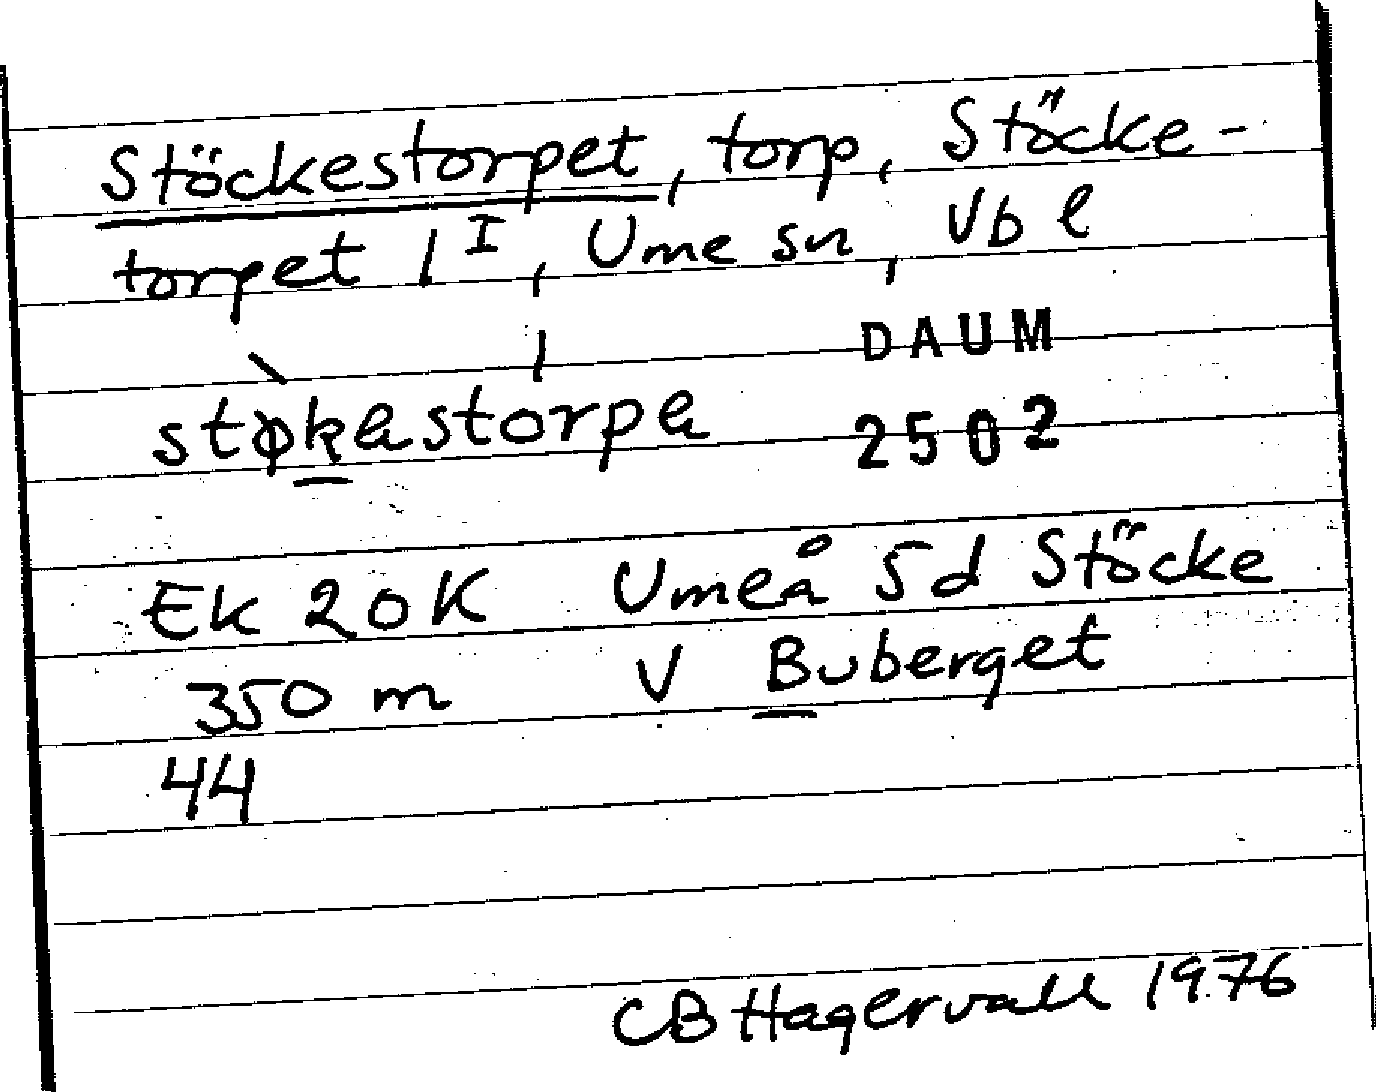 Stöckestorpet, torp, Stöcke-
torpet 1 I, Ume sn, Vb l
DAUM
støkastorpa
2502
Ek 20K Umeå 5d Stöcke
350 m V Buberget
44
CB Hagervall 1976